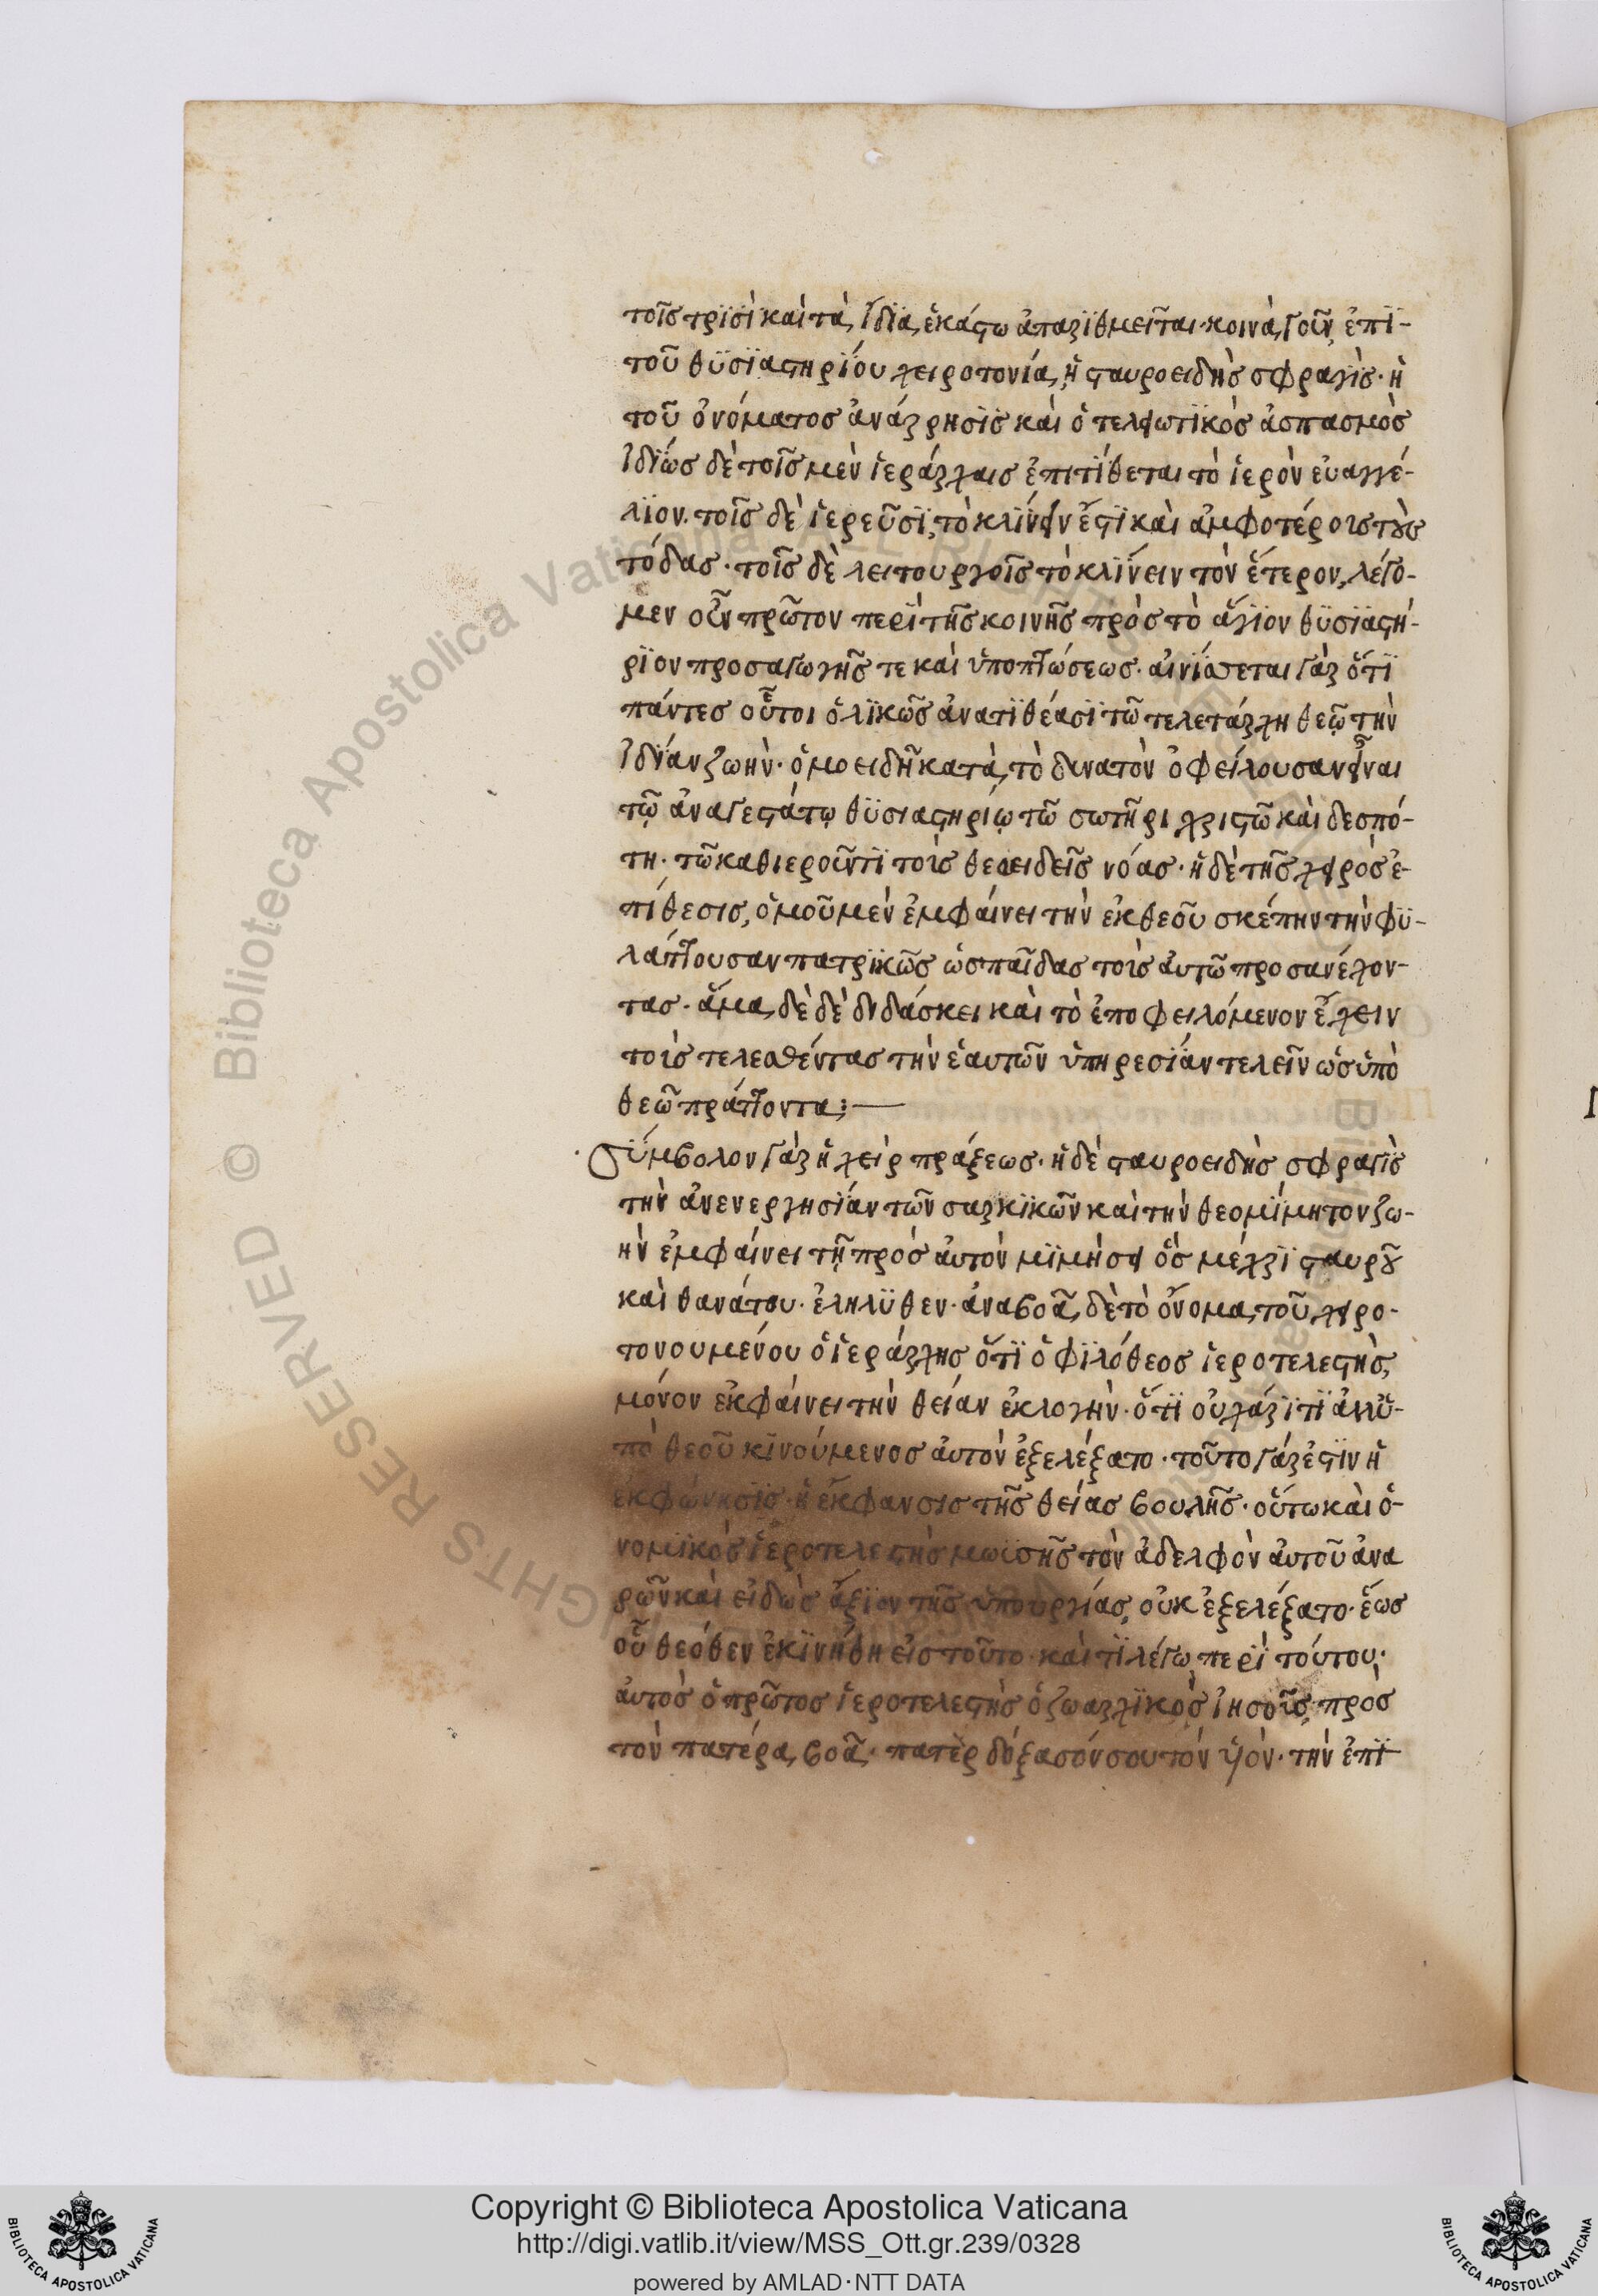 τοῖς τρϊσὶ καὶ τὰ ἴδϊα ἑκάστω ἀπαρϊθμεῖται· κοινὰ γοῦν, ἐπῒ-
τοῦ θϋσϊαστηρΐου χειροτονία, ἡ σταυροειδὴς σφραγῒς· ἡ
τοῦ ὀνόματος ἀνάρρησϊς καὶ ὁ τελειωτϊκὸς ἀσπασμὸς
ἰδΐως δὲ τοῖς μὲν ἱεράρχαις ἐπιτΐθεται τὸ ἱερὸν εὐαγγέ-
λϊον. τοῖς δὲ ἱερεῦσϊ, τὸ κλΐνειν ἔστϊ καὶ ἀμφοτέροις τοὺς
πόδας· τοῖς δὲ λειτουργοῖς τὸ κλΐνειν τὸν ἕτερον, λέγο-
μεν οὖν πρῶτον περῒ τῆς κοινῆς πρὸς τὸ ἅγϊον θϋσϊαστή-
ρϊον προσαγωγῆς τε καὶ ὑποπτώσεως· αἰνΐσσεται γὰρ ὅτϊ
πάντες οὗτοι ὁλϊκῶς ἀνατϊθέασϊ τῶ τελετάρχη θεῷ τὴν
ἰδΐαν ζωὴν· ὁμοειδῆ κατὰ τὸ δυνατὸν ὀφείλουσαν εἶναι
τῷ ἀναγεστάτῳ θϋσιαστηρίῳ τῶ σωτῆρι χριστῶ καὶ δεσπό-
τη· τῶ καθιεροῦντϊ τοὺς θεοειδεῖς νόας· ἡ δὲ τῆς χειρὸς ἐ-
πίθεσις, ὁμοῦ μὲν ἐμφαίνει τὴν ἐκ θεοῦ σκέπην τὴν φϋ-
λάττουσαν πατρϊκῶς ὡς παῖδας τοὺς ἀυτῶ προσανέχον-
τας· ἅμα δὲ δὲ διδάσκει καὶ τὸ ἐποφειλόμενον ἔχειν
τοὺς τελεσθέντας τὴν ἑαυτῶν ὑπηρεσΐαν τελεῖν ὡς ὑπὸ
θεῶ πράττοντα:—
Σύμβολον γὰρ ἡ χεὶρ πράξεως· ἡ δὲ σταυροειδὴς σφραγῒς
τὴν ἀνενεργησΐαν τῶν σαρκϊκῶν καὶ τὴν θεομΐμητον ζω-
ὴν ἐμφαίνει τῇ πρὸς ἀυτὸν μϊμήσει ὃς μέχρϊ σταυροῦ
καὶ θανάτου· ἐλήλϋθεν· ἀναβοᾶ, δὲ τὸ ὄνομα, τοῦ χειρο-
τονουμένου ὁ ἱεράρχης ὅτϊ ὁ φϊλόθεος ἱεροτελεστὴς,
μόνον ἐκφαίνει τὴν θείαν ἐκλογὴν· ὅτϊ οὐ χάρϊτϊ ἀλλ' ὑ-
πὸ θεοῦ κϊνούμενος ἀυτὸν ἐξελέξατο· τοῦτο γάρ ἐστϊν ἡ
ἐκφώνησϊς· ἡ ἔκφανσις τῆς θείας βουλῆς· οὕτω καὶ ὁ-
νομϊκὸς ἱεροτελεστὴς μωϊσῆς τὸν ἀδελφὸν ἀυτοῦ ἀνα
ρῶν καὶ εἰδὼς ἄξϊον τῆς ὑπουργίας, οὐκ ἐξελέξατο· ἕως
οὗ θεόθεν ἐκϊνήθη εἰς τοῦτο· καὶ τΐ λέγω περῒ τούτου·
ἀυτὸς ὁ πρῶτος ἱεροτελεστὴς ὁ ζωαρχϊκὸς ἰησοῦς, πρὸς
τὸν πατέρα, βοᾶ· πατὲρ δόξασόν σου τὸν ὑϊὸν· τὴν ἐπῒ
Copyright © Biblioteca Apostolica Vaticana
http://digi.vatlib.it/view/MSS_Ott.gr.239/0328
powered by AMLAD·NTT DATA
BIBLIOTECA APOSTOLICA VATICANA
BIBLIOTECA APOSTOLICA VATICANA